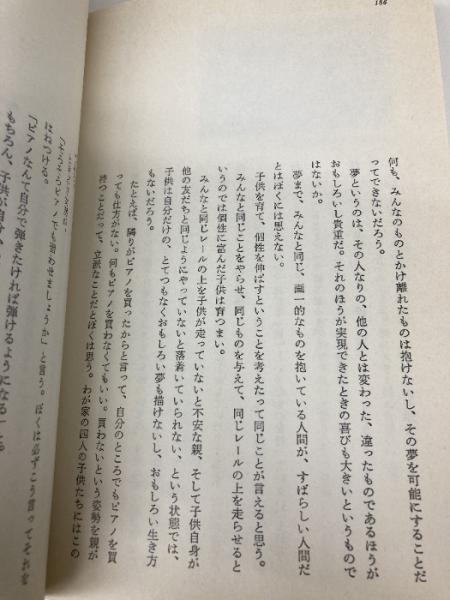 186
何も、みんなのものとかけ離れたものは抱けないし、その夢を可能にすることだ
ってできないだろう。
夢というのは、その人なりの、他の人とは変わった、違ったものであるほうが
おもしろいし貴重だ。それのほうが実現できたときの喜びも大きいというもので
はないか。
夢まで、みんなと同じ、画一的なものを抱いている人間が、すばらしい人間だ
とはぼくには思えない。
子供を育て、個性を伸ばすということを考えたって同じことが言えると思う。
みんなと同じことをやらせ、同じものを与えて、同じレールの上を走らせると
いうのでは個性に富んだ子供は育つまい。
みんなと同じレールの上を子供が走っていないと不安な親、そして子供自身が
他の友だちと同じようにやっていないと落着いていられない、という状態では、
子供は自分だけの、とてつもなくおもしろい夢も描けないし、おもしろい生き方
もないだろう。
たとえば、隣りがピアノを買ったからと言って、自分のところでもピアノを買
っても仕方がない。何もピアノを買わなくてもいい。買わないという姿勢を親が
持つことだって、立派なことだとぼくは思う。わが家の四人の子供たちにはこの
「そろそろピアノでも習わせましょうか」と言う。ぼくは必ずこう言ってそれを
はねつける。
「ピアノなんて自分で弾きたければ弾けるようになる」と。
もちろん、子供が自分